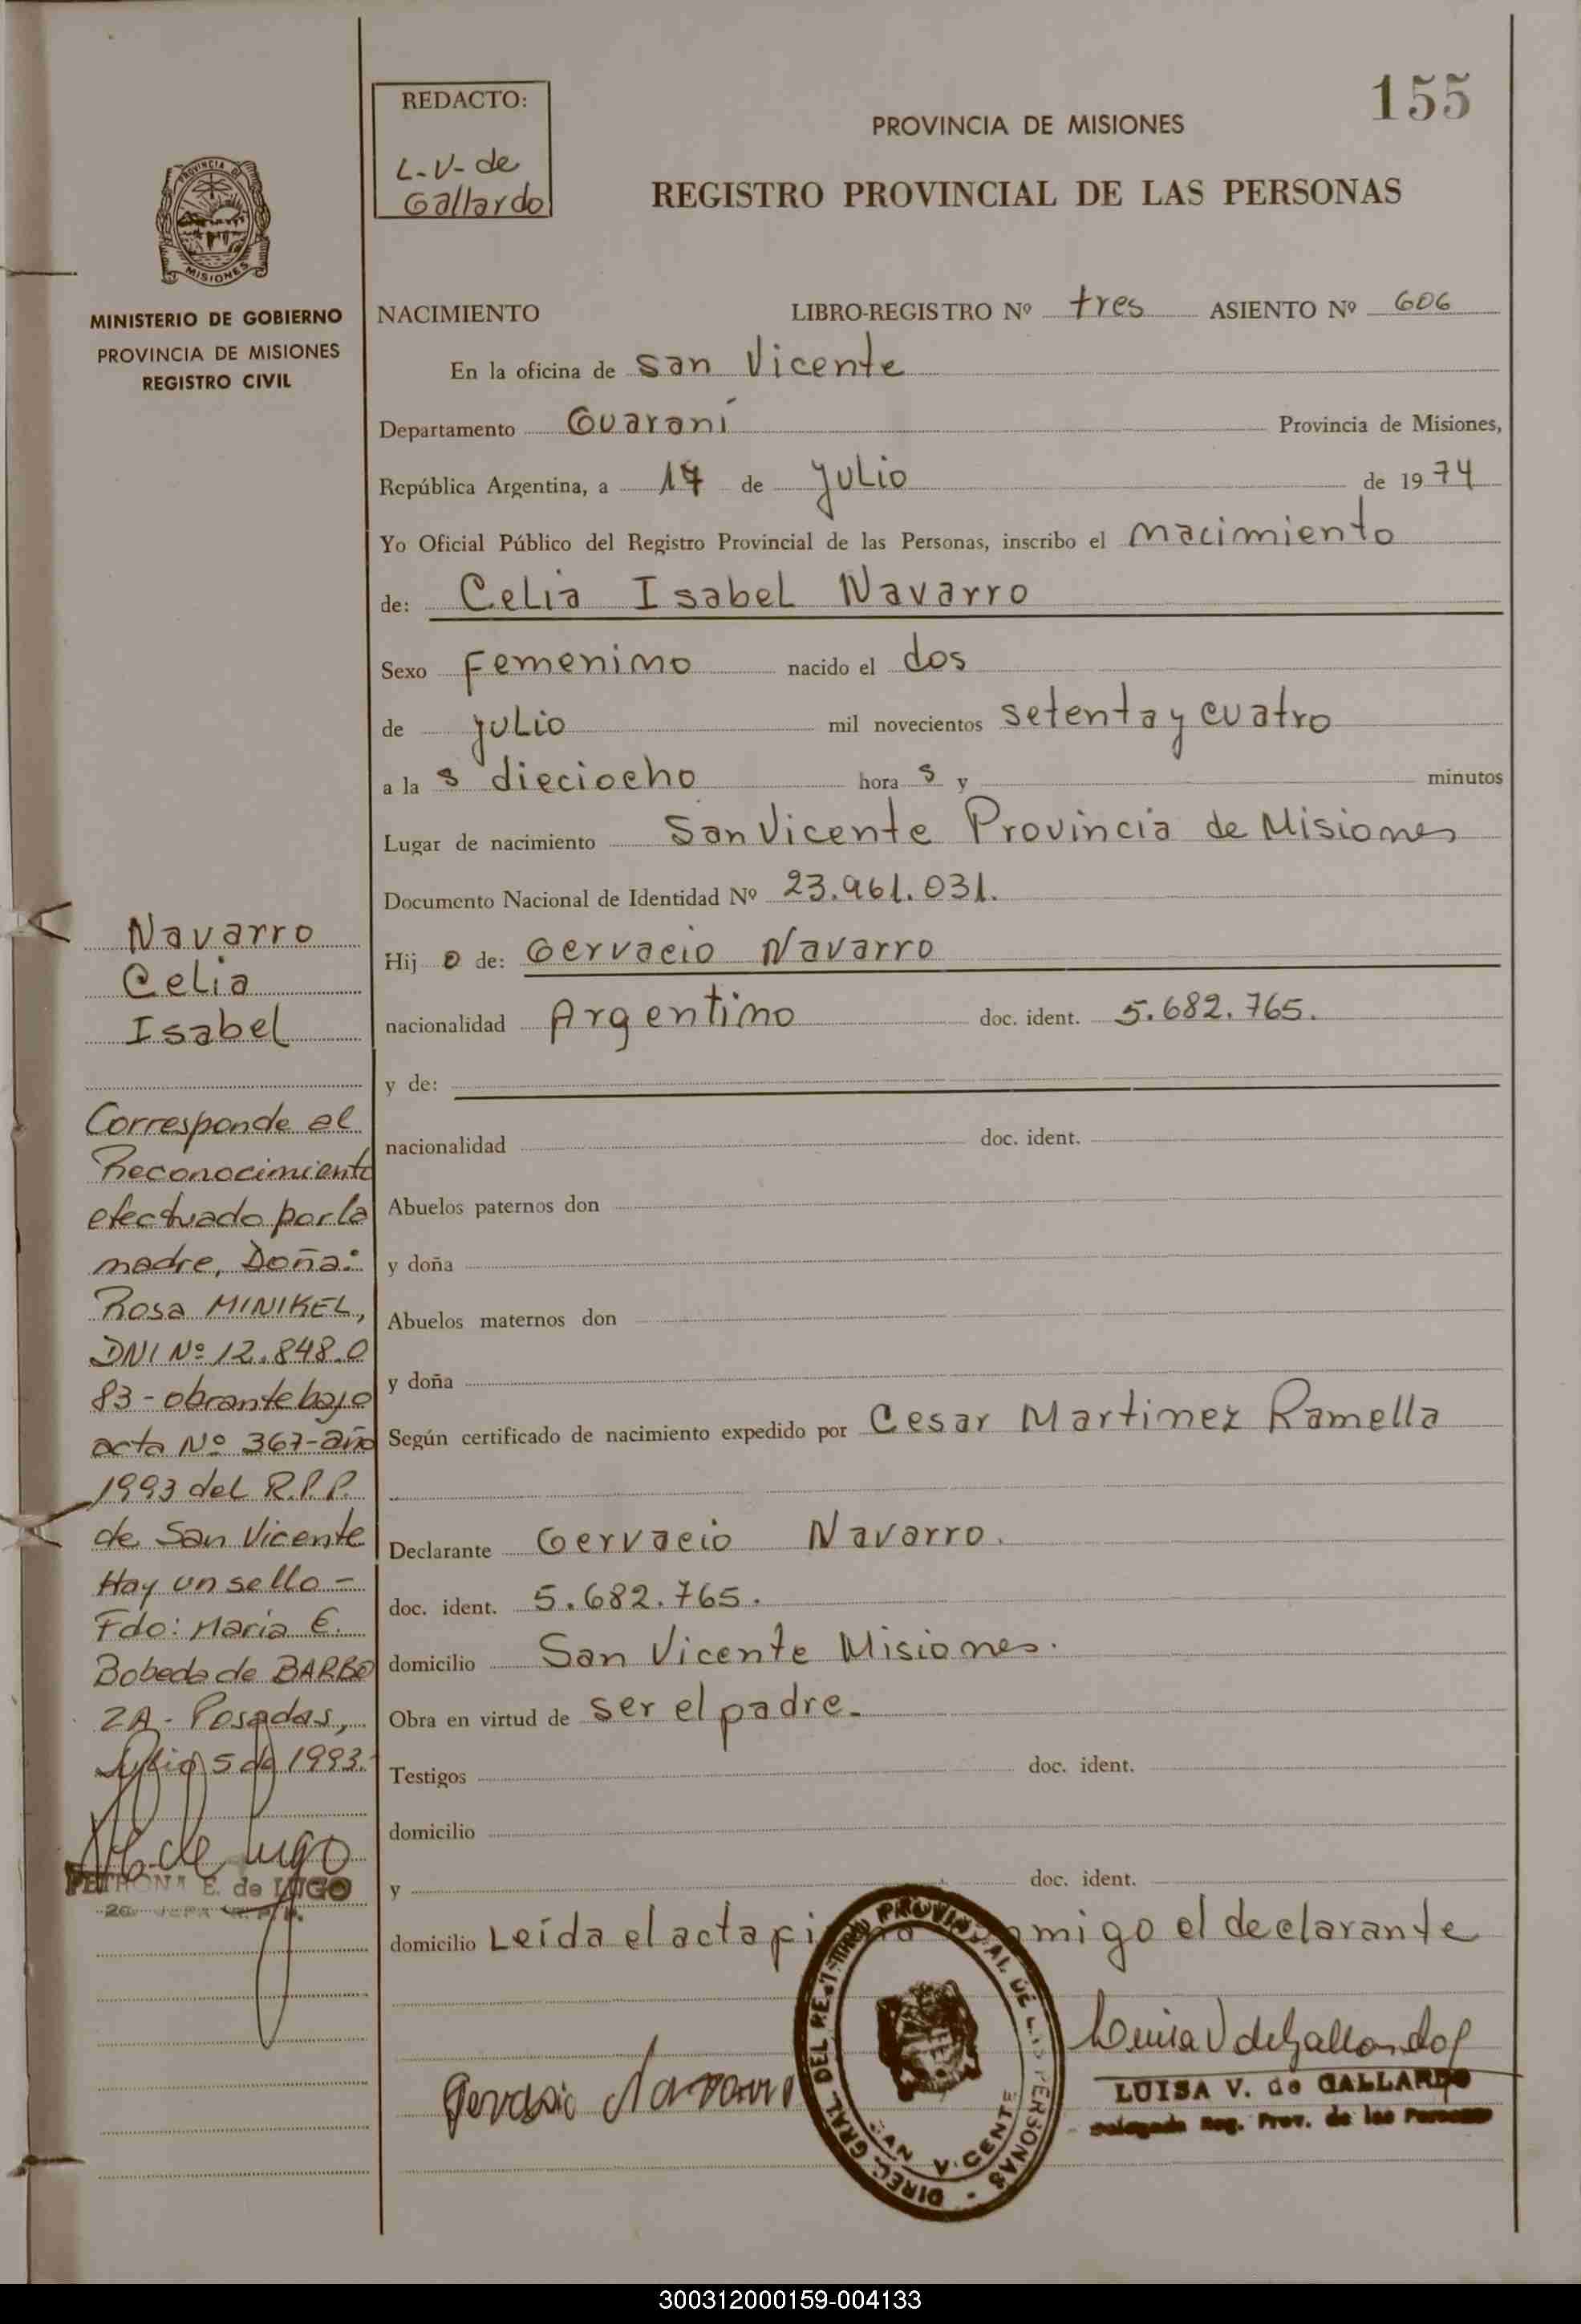 155
REDACTO:
L-V- de
Gallardo
PROVINCIA DE MISIONES
REGISTRO PROVINCIAL DE LAS PERSONAS
PROVINCIA DE
MISIONES
MINISTERIO DE GOBIERNO
PROVINCIA DE MISIONES
REGISTRO CIVIL
NACIMIENTO LIBRO-REGISTRO Nº tres ASIENTO Nº 606
En la oficina de San Vicente
Departamento Guaraní Provincia de Misiones,
República Argentina, a 17 de julio de 1974
Yo Oficial Público del Registro Provincial de las Personas, inscribo el nacimiento
de: Celia Isabel Navarro
Sexo Femenino nacido el dos
de julio mil novecientos setenta y cuatro
a la s dieciocho hora s y minutos
Lugar de nacimiento San Vicente Provincia de Misiones
Documento Nacional de Identidad Nº 23.961.031.
Hij a de: Gervacio Navarro
nacionalidad Argentino doc. ident. 5.682.765.
y de:
nacionalidad doc. ident.
Abuelos paternos don
y doña
Abuelos maternos don
y doña
Según certificado de nacimiento expedido por Cesar Martinez Ramella
Declarante Gervacio Navarro.
doc. ident. 5.682.765.
domicilio San Vicente Misiones.
Obra en virtud de ser el padre.
Testigos doc. ident.
domicilio
y doc. ident.
domicilio Leída el acta omigo el declarante
Navarro
Celia
Isabel
Corresponde al
Reconocimiento
efectuado por la
madre, Doña:
Rosa MINIKEL,
DNI Nº 12.848.0
83 - obrante bajo
acta Nº 367-año
1993 del R.P.P.
de San Vicente
Hay un sello -
Fdo: Maria E.
Bobeda de BARBO
ZA - Posadas,
Julio 5 de 1993.-
de Lugo
PETRONA E. de LUGO
Gervasio Navarro
DIREC. GRAL. DEL REGISTRO PROVINCIAL DE LAS PERSONAS -
SAN VICENTE
Luisa V de Gallardo
LUISA V. de GALLARDO
Delegada Reg. Prov. de las Personas
300312000159-004133